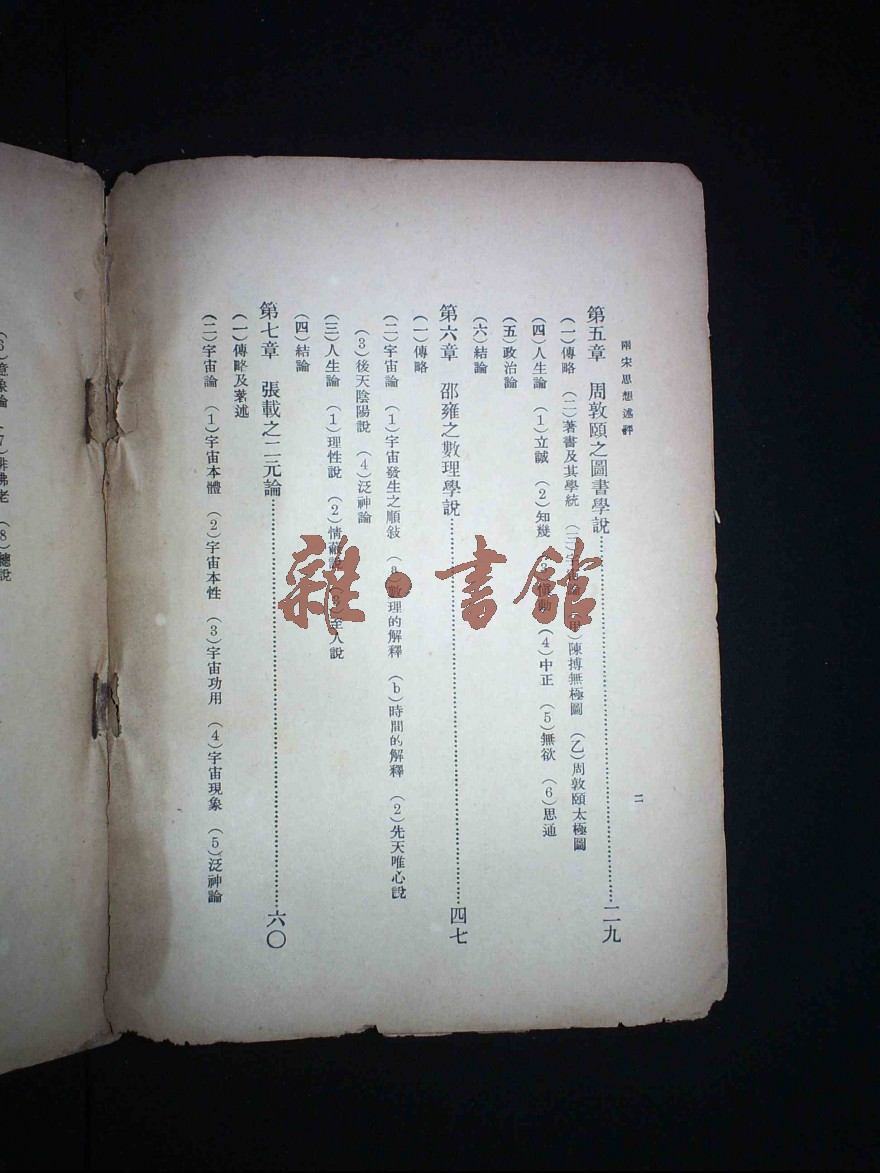 兩宋思想述評
二
第五章　周敦頤之圖書學說……二九
(一)傳略　(二)著書及其學統　(三)宇宙論　(甲)陳摶無極圖　(乙)周敦頤太極圖
(四)人生論　(1)立誠　(2)知幾　(3)慎動　(4)中正　(5)無欲　(6)思通
(五)政治論
(六)結論
第六章　邵雍之數理學說……四七
(一)傳略
(二)宇宙論　(1)宇宙發生之順敍　(a)數理的解釋　(b)時間的解釋　(2)先天唯心說
(3)後天陰陽說　(4)泛神論
(三)人生論　(1)理性說　(2)情蔽說　(3)至人說
(四)結論
第七章　張載之二元論……六〇
(一)傳略及著述
(二)宇宙論　(1)宇宙本體　(2)宇宙本性　(3)宇宙功用　(4)宇宙現象　(5)泛神論
(6)意像論　(7)排佛老　(8)總說
雜·書館